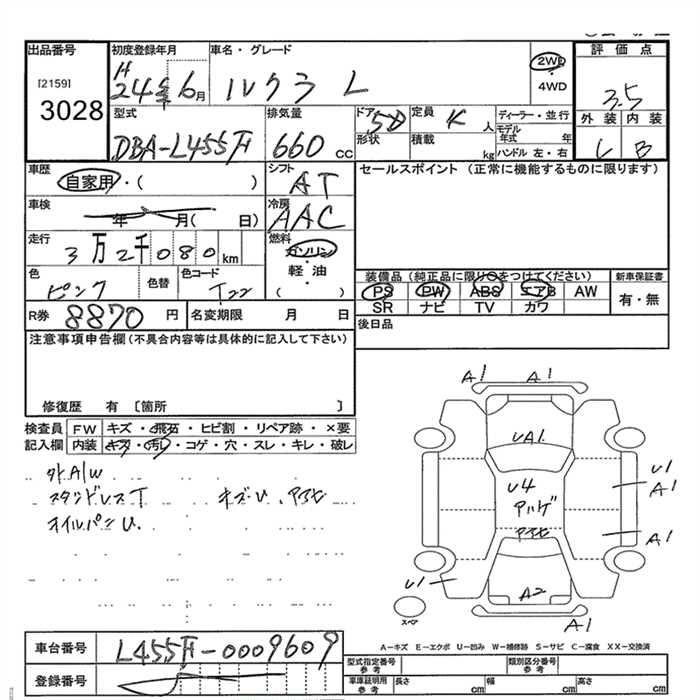 出品番号
[2159]
3028
初度登録年月
H24年6月
車名・グレード
ルクラ L
2WD
・
4WD
評価点
3.5
外装 内装
C B
型式
DBA-L455F
排気量
660 cc
ドア 5D
形状
定員 K 人
積載 kg
ディーラー・並行
モデル年式 年
ハンドル 左・右
車歴
自家用・( )
シフト
AT
セールスポイント (正常に機能するものに限ります)
車検
年 月( 日)
冷房
AAC
走行
3万2千080km
燃料
ガソリン
軽・油
( )
色
ピンク
色替
色コード
T22
装備品(純正品に限り○をつけてください)
PS PW ABS エアB AW
SR ナビ TV カワ
新車保証書
有・無
R券 8870 円
名変期限 月 日
後日品
注意事項申告欄(不具合内容等は具体的に記入して下さい)
修復歴 有 〔箇所 〕
検査員記入欄
FW キズ・飛石・ヒビ割・リペア跡・×要
内装 キズ・汚れ・コゲ・穴・スレ・キレ・破レ
外A/W
スタンドレスT キズU、アヲセ
オイルパンU.
A1 A1
UA1
U4
アハゲ
アヲセ
U1
A1
A1
U1
A2
A1
スペア
A-キズ E-エクボ U-凹み W-補修跡 S-サビ C-腐食 XX-交換済
車台番号
L455F-0009609
登録番号
型式指定番号
参考
類別区分番号
参考
車庫証明用
参考
長さ cm 幅 cm 高さ cm